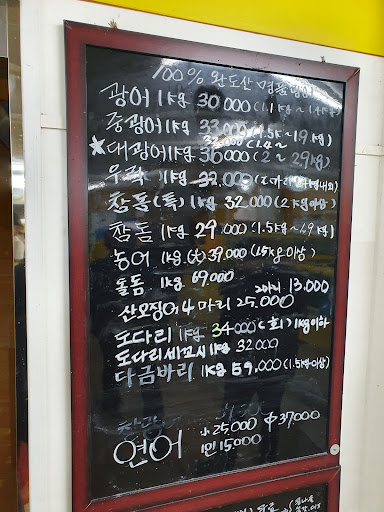 100% 완도산 명품
광어 1kg 30.000(1.1kg~1.4kg)
중광어 1kg 33.000(1.5k~1.9kg)
★대광어 1kg 36000(2~2.9kg)
우럭 1kg 32.000
참돔(특) 1kg 32.000(2kg이상)
참돔 1kg 29.000(1.5kg~1.9kg)
농어 1kg(大)39,000(1.5kg이상)
돌돔 1kg 69.000
20마리 13.000
산오징어 4마리 25.000
도다리 1kg 34000(회)1kg이하
도다리세꼬시 1kg 32.000
다금바리 1kg 59.000(1.5kg이상)
연어 小25,000 中37000
1인 15.000